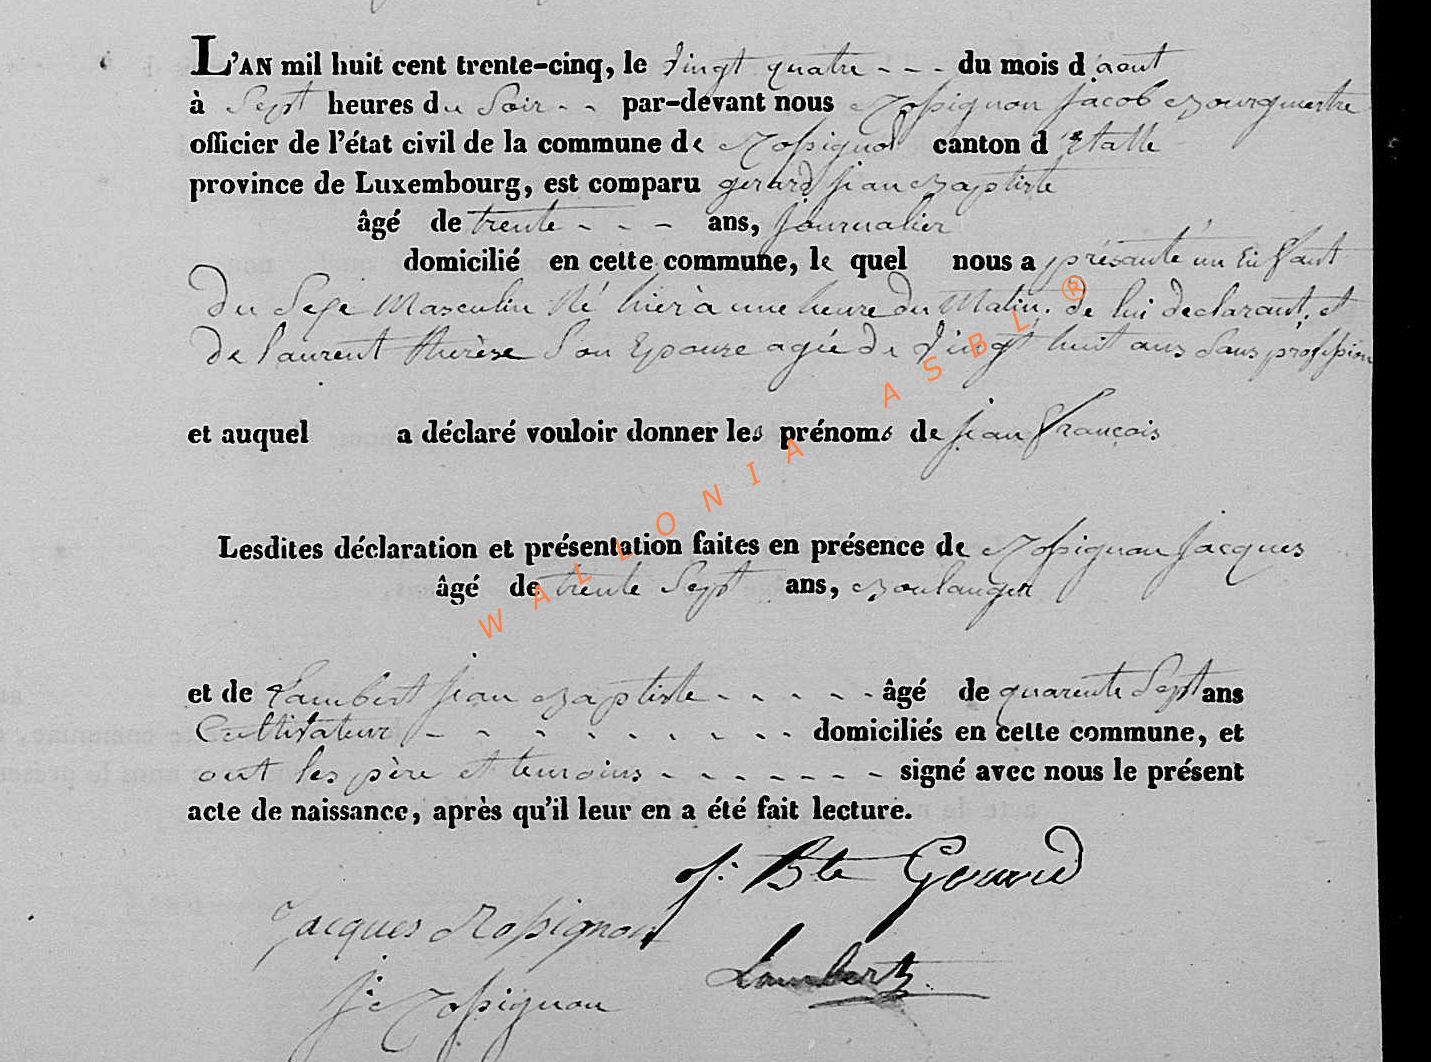 L'AN mil huit cent trente-cinq, le vingt quatre - - - du mois d'aout
à Sept heures du Soir - - par-devant nous Rossignon Jacob Bourgmestre
officier de l'état civil de la commune de Rossignol canton d'Etalle
province de Luxembourg, est comparu gerard jean Baptiste
âgé de trente - - - ans, journalier
domicilié en cette commune, le quel nous a présanté un Enfant
du Sexe Masculin Né hier à une heure du Matin. de lui declarant, et
de laurent therèse Son Epouse agée de vingt huit ans Sans profession
et auquel a déclaré vouloir donner les prénoms de jean françois
Lesdites déclaration et présentation faites en présence de Rossignon jacques
âgé de trente Sept ans, Boulanger
et de Lambert jean Baptiste - - - - - âgé de quarente Sept ans
Cultivateur - - - - - - - - - domiciliés en cette commune, et
ont les père et temoins - - - - - - - signé avec nous le présent
acte de naissance, après qu'il leur en a été fait lecture.
J. Bte Gerard
Jacques Rossignon
Lambert
J. Rossignon
WALLONIA ASBL ®